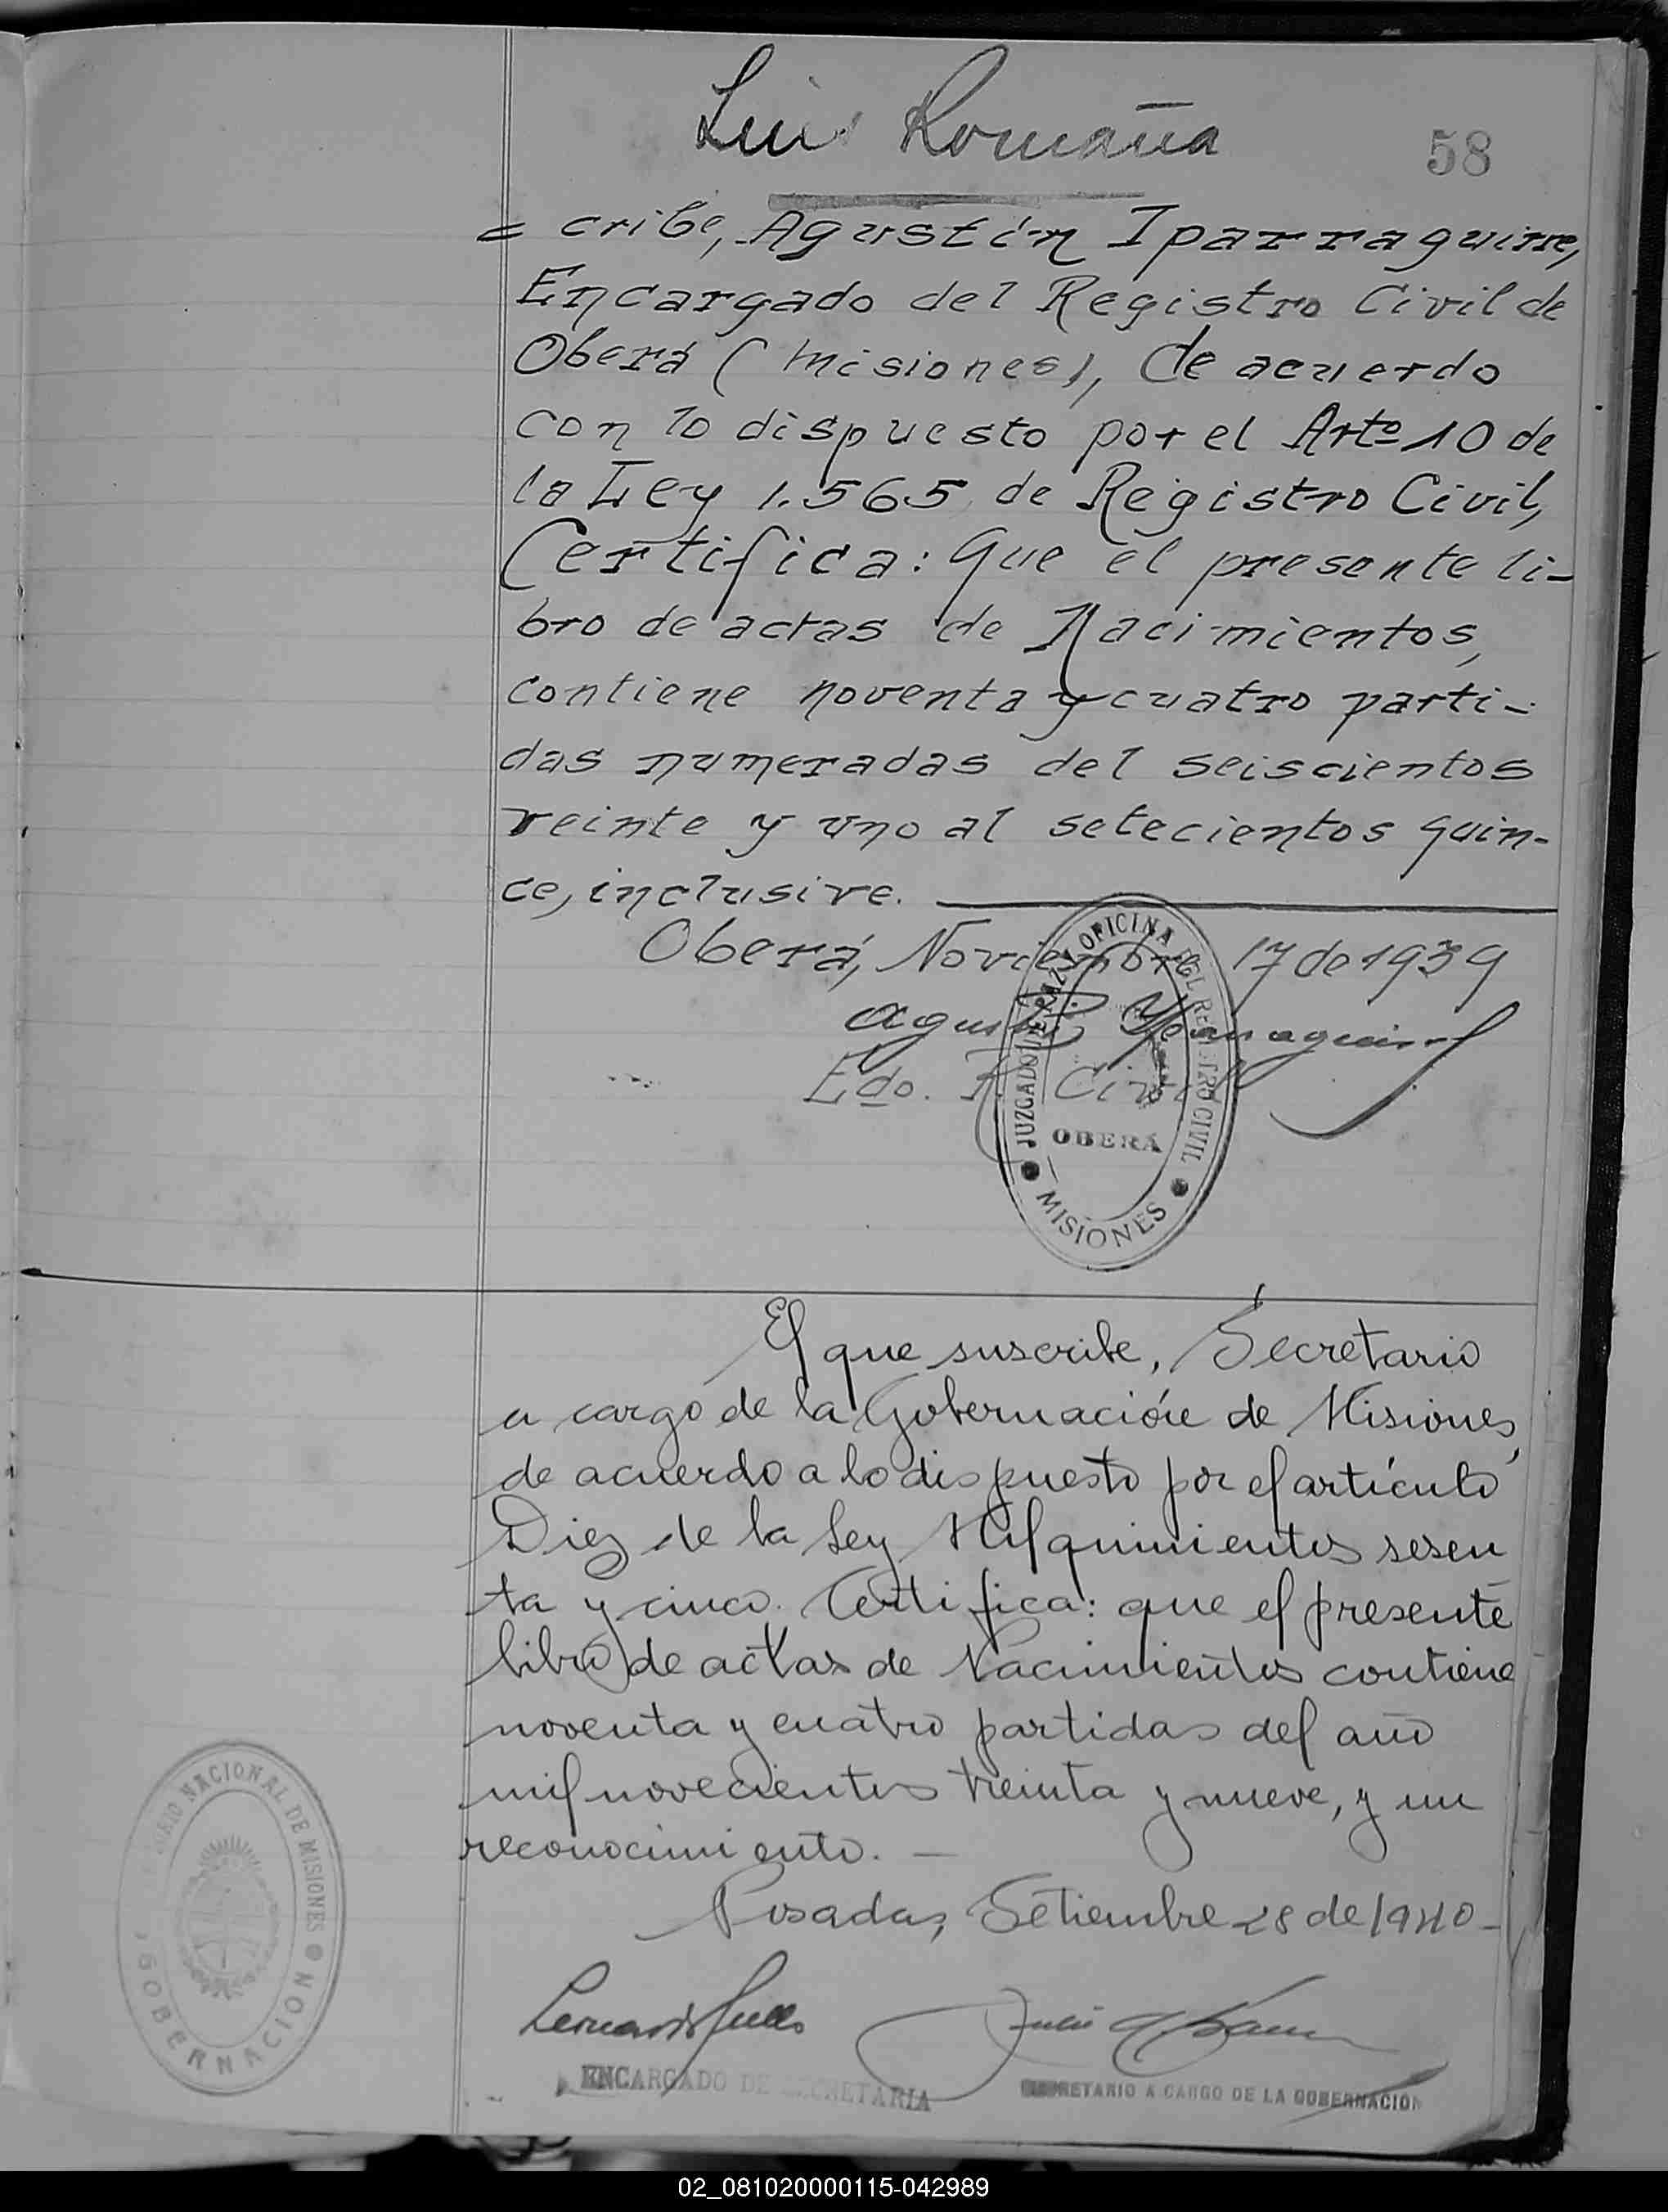 Luis Romaña
58
= cribe, Agustín Iparraguirre,
Encargado del Registro Civil de
Oberá (Misiones), de acuerdo
con lo dispuesto por el Artº 10 de
la Ley 1.565 de Registro Civil,
Certifica: Que el presente li-
bro de actas de Nacimientos,
contiene noventa y cuatro parti-
das numeradas del seiscientos
veinte y uno al setecientos quin-
ce, inclusive.
Oberá, Noviembre 17 de 1939
Agustín Yparraguirre
Edo. R. Civil
JUZGADO DE PAZ Y OFICINA DEL REGISTRO CIVIL
OBERÁ
MISIONES
El que suscribe, Secretario
a cargo de la Gobernación de Misiones,
de acuerdo a lo dispuesto por el artículo
Diez de la Ley Mil quinientos sesen
ta y cinco. Certifica: que el presente
libro de actas de Nacimientos contiene
noventa y cuatro partidas del año
mil novecientos treinta y nueve, y un
reconocimiento. —
Posadas, Setiembre 28 de 1940-
ENCARGADO DE SECRETARIA
SECRETARIO A CARGO DE LA GOBERNACION
NACIONAL DE MISIONES
GOBERNACION
02_081020000115-042989